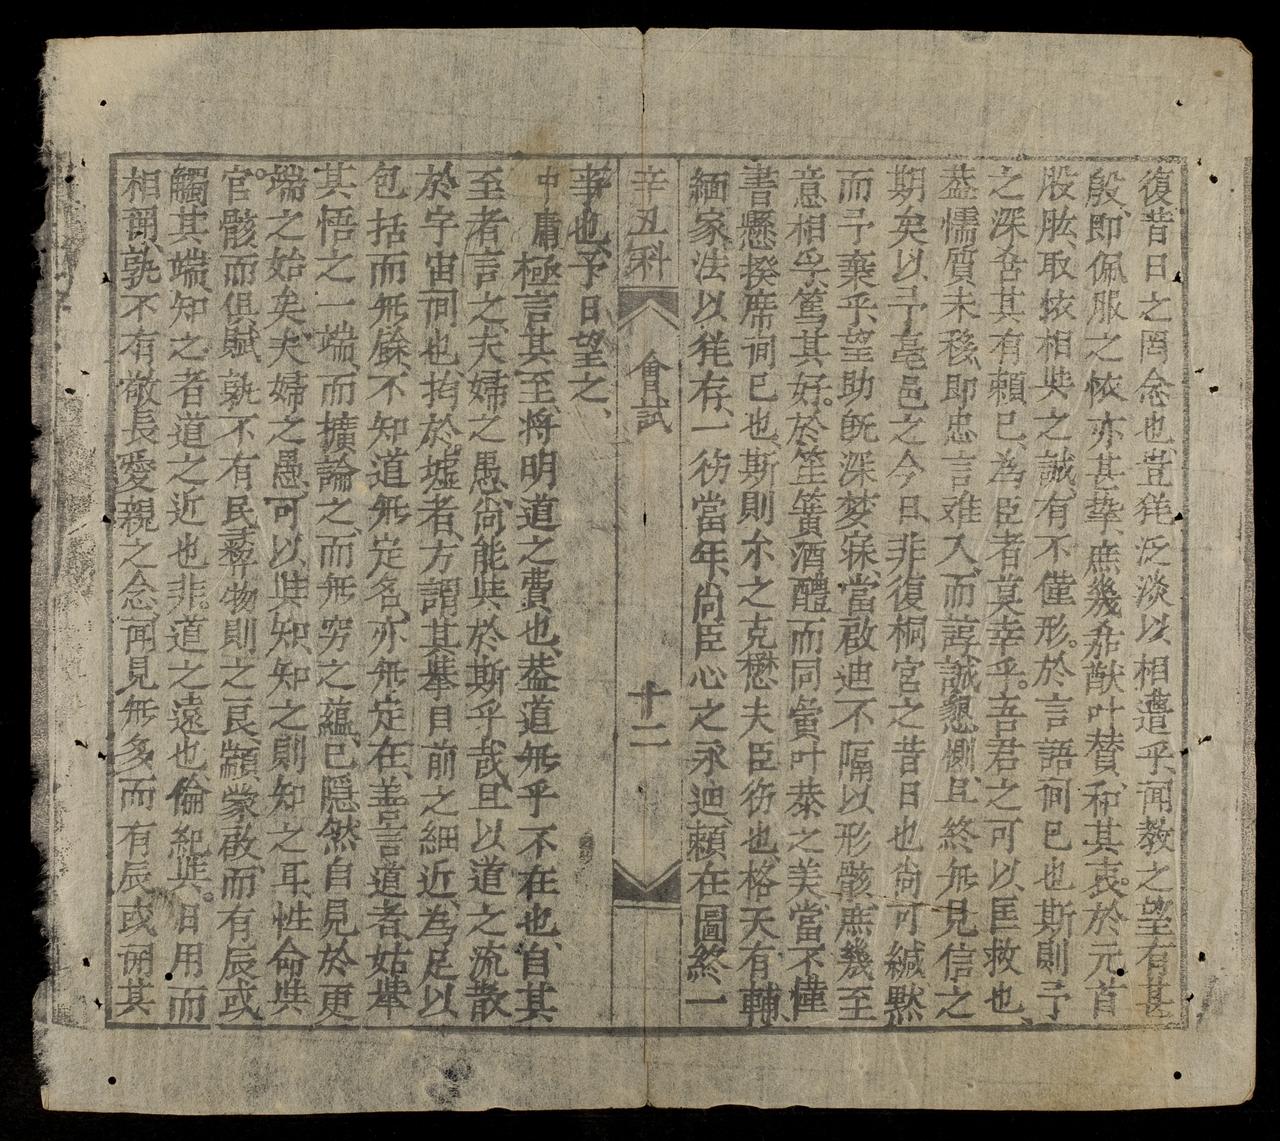 復昔日之罔念也、豈徒泛淡以相遭乎、聞教之望有甚
殷、即佩服之依亦甚摯、庶幾嘉猷叶贊、和其衷。於元首
股肱、取依相與之誠、有不僅形。於言語间已也斯則予
之深舍其有頼已、為臣者莫幸乎。吾君之可以匡救也、
葢懦質未移、即忠言难入、而諄誠懇惻、且終無見信之
期矣以予亳邑之今日、非復桐宮之昔日也尚可緘黙
而予棄乎、望助既深、梦寐當啟迪不隔以形骸庶幾至
意相孚、篤其好。於笙簧酒醴而同寅叶恭之美、當不僅
書懸揆席间已也、斯則尒之克懋夫臣彷也、格天有輔、
緬家法以徒存、一彷當年、尚臣心之永迪、頼在圖終一
辛丑科
會試
十二
事也、予日望之、
中庸極言其至、将明道之費也、葢道無乎不在也、自其
至者言之、夫婦之愚、尚能與於斯乎哉、且以道之流散
於宇宙间也、拘於墟者、方謂其舉目前之細近、為足以
包括而無餘、不知道無定名、亦無定在、善言道者、姑舉
其悟之一端、而擴論之、而無穷之蘊、已隐然自見於更
端之始矣、夫婦之愚、可以與知、知之則知之耳、性命與
官。骸而俱賦、孰不有民彞物則之良、顓蒙啟、而有辰或
觸其端、知之者道之近也、非。道之遠也、倫紀與。日用而
相 、孰不有敬長愛親之念、聞見無多而有辰或開其